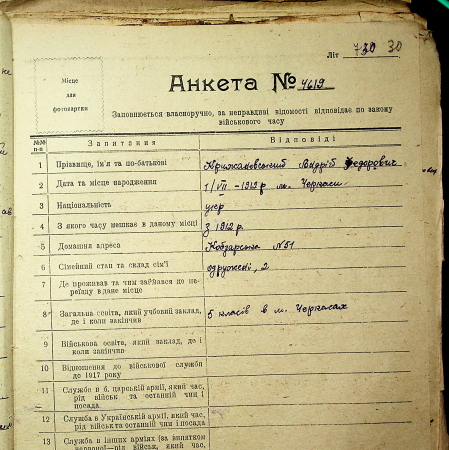 Літ 720 30
Місце
для
фотокартки
Анкета № 4619
Заповнюється власноручно, за неправдиві відомості відповідає по закону
військового часу
№№
п-п
Запитання
Відповіді
1 Прізвище, ім'я та по-батькові Крижановський Андрій Федорович
2 Дата та місце народження 1/VII – 1912 р м. Черкаси
3 Національність укр
4 З якого часу мешкає в даному місці з 1912 р.
5 Домашня адреса Кобзарська №51
6 Сімейний стан та склад сім'ї одружені, 2
7 Де проживав та чим займався до пе-
реїзду в дане місце
8 Загальна освіта, який учбовий заклад,
де і коли закінчив 5 класів в м. Черкасах
9 Військова освіта, який заклад, де і
коли закінчив
10 Відношення до військової служби
до 1917 року
11 Служба в б. царській армії, який час,
рід військ та останній чин і
посада
12 Служба в Українській армії, який час,
рід військ та останній чин і посада
13 Служба в інших арміях (за винятком
червоної—рід військ, який час,